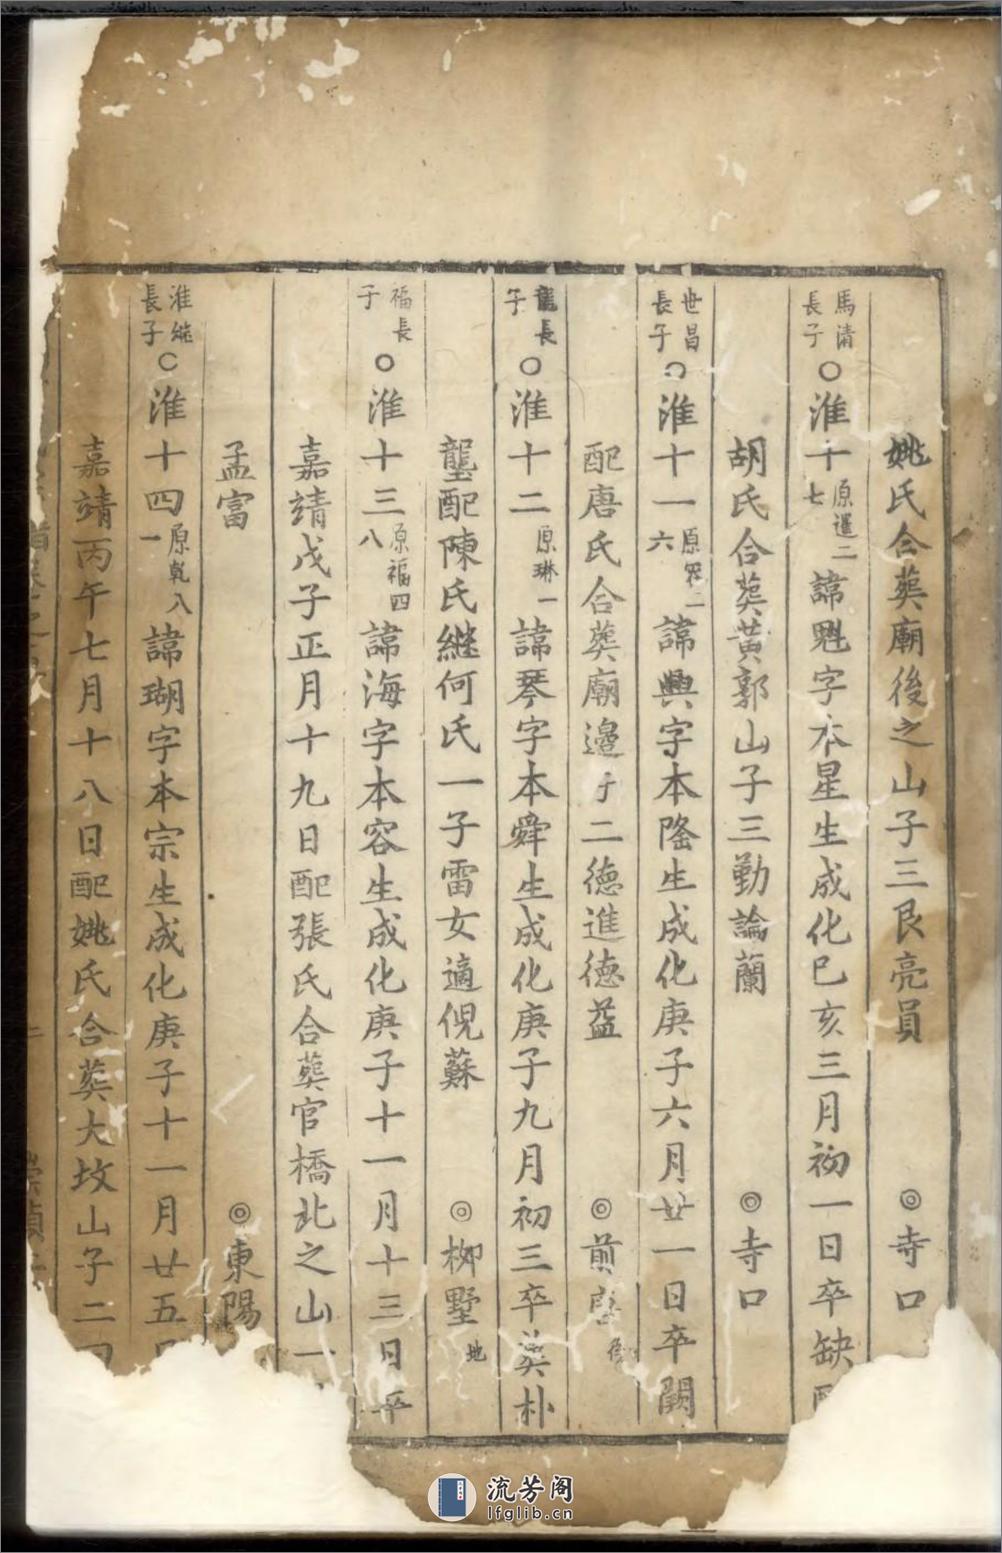 姚氏合葬廟後之山子三艮亮員 ◎寺口
馬清長子○淮十原暹二七諱魁字本星生成化己亥三月初一日卒缺配
胡氏合葬黄郭山子三勤論蘭 ◎寺口
世昌長子○淮十一原二六諱興字本隆生成化庚子六月廿一日卒闕
配唐氏合葬廟邊子二德進德益 ◎前
龍長子○淮十二原琳一諱琴字本舜生成化庚子九月初三卒葬朴
壟配陳氏継何氏一子雷女適倪蘇 ◎柳墅地
福長子○淮十三原福四八諱海字本容生成化庚子十一月十三日卒
嘉靖戊子正月十九日配張氏合葬官橋北之山一
孟富 ◎東陽
淮継長子○淮十四原乾八一諱瑚字本宗生成化庚子十一月廿五日
嘉靖丙午七月十八日配姚氏合葬大坟山子二
流芳阁
lfglib.cn